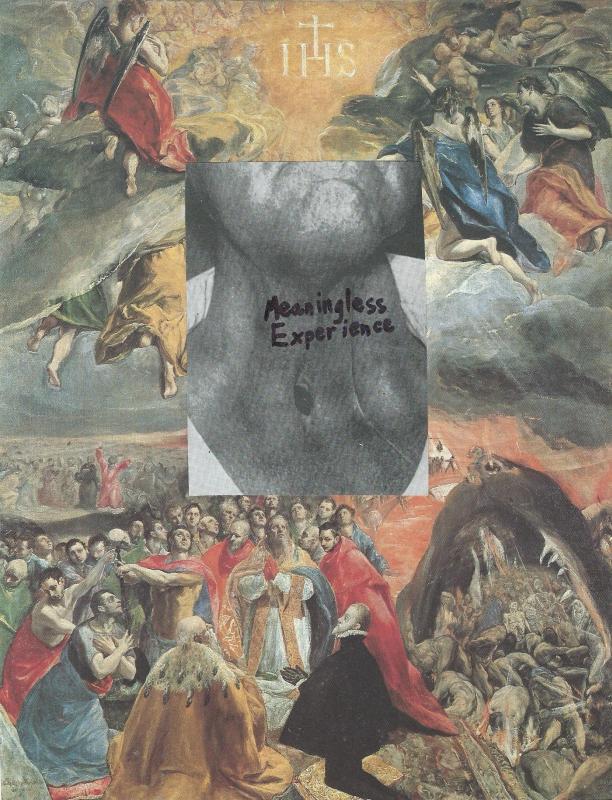 IHS
Meaningless
Experience